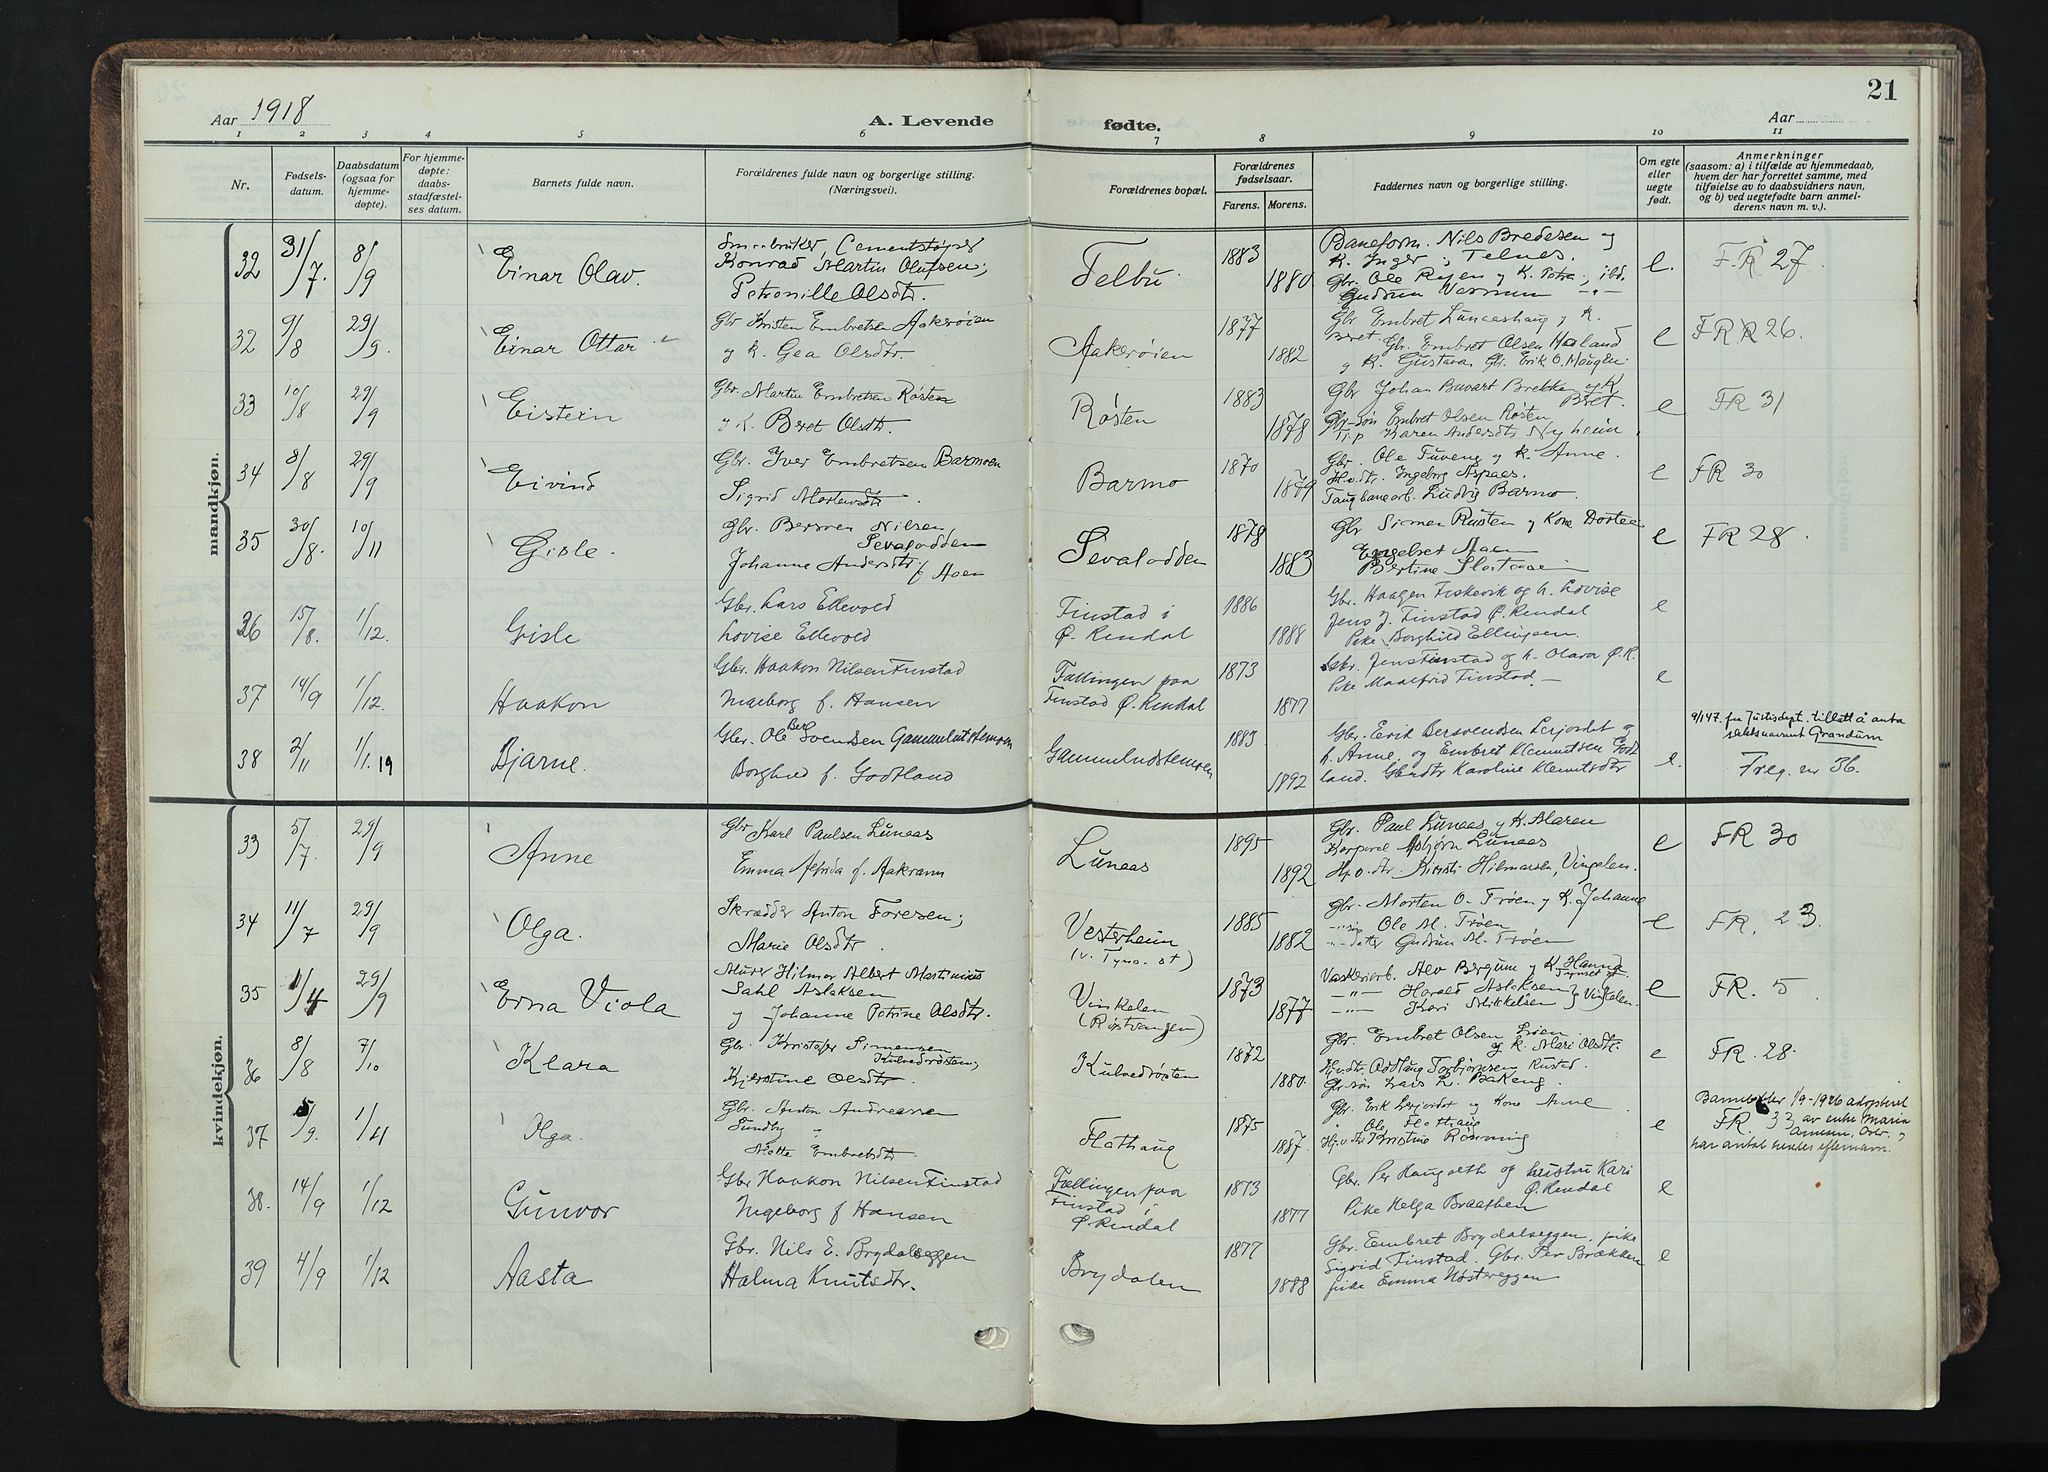 21
Aar 1918
A. Levende
fødte.
Aar
1 2 3 4 5 6 7 8 9 10 11
Nr.
Fødsels-
datum.
Daabsdatum
(ogsaa for
hjemme-
døpte).
For hjemme-
døpte:
daabs-
stadfæstel-
ses datum.
Barnets fulde navn.
Forældrenes fulde navn og borgerlige stilling.
(Næringsvei).
Forældrenes bopæl.
Forældrenes
fødselsaar.
Farens. Morens.
Faddernes navn og borgerlige stilling.
Om egte
eller
uegte
født.
Anmerkninger
(saasom: a) i tilfælde av hjemmedaab,
hvem der har forrettet samme, med
tilføielse av to daabsvidners navn,
og b) ved uegtefødte barn anmel-
derens navn m. v.).
mandkjøn.
32 31/7. 8/9 Einar Olav.
Cementstøper
Konrad Martin Olufsen;
Petronille Olsdtr.
Telbu
1883
1880
Baneform. Nils Bredesen og
K. Inger, Telnes.
Gbr. Ole Røjen y K. ibd.
Gudrun
e.
FR 27.
32 9/8 29/9. Einar Ottar
Gbr Kristen Embretsen Aakerøien
y K. Gea Olsdtr.
Aakerøien
1877
1882
Gbr Embret Lunaashaug y K.
Beret. Gbr. Embret Olsen Haland
y K. Gustava Gbr. Erik O. Haugen.
e
FR 26.
33 10/8 29/9 Eistein
Gbr. Martin Embretsen Røsten
y K. Beret Olsdtr.
Røsten
1883
1878
Gbr Johan Buvart Brekken y K
Beret.
Gbr-søn Embret Olsen Røsten
Karen Andersdtr Nyheim.
e
FR 31
34 8/8 29/9 Eivind
Gbr. Iver Embretsen Barmoen
Sigrid Mortensdtr.
Barmo
1870
1879
Gbr. Ole Tuveng y K. Anne.
H.v.dtr. Ingeborg Aspaas.
Taugbanearb. Ludvig Barmo.
e
FR 30
35 30/8. 10/11 Gisle.
Gbr. Bersven Nilsen
Sevalodden
Johanne Andersdtr f. Moen
Sevalodden
1878
1883
Gbr Simen Rusten y Kone Dortea
Engebret Moen
Bertine
e
FR 28.
36 15/8. 1/12. Gisle
Gbr. Lars Ellevold
Lovise Ellevold
Finstad i
Ø. Rendal
1886
1888
Gbr. Haagen Fiskevik og h. Lovise
Jens J. Finstad Ø. Rendal
Pike Borghild Ellingsen.
e
37 14/9 1/12. Haakon
Gbr. Haakon Nilsen Finstad
Ingeborg f. Hansen
Fællingen paa
Finstad Ø. Rendal
1873
1877
Gbr. Jens Finstad og h. Olava Ø. R.
Pike Maalfrid Finstad. —
e
38 2/11 1/1.19 Bjarne.
Gbr. Ole Bersvendsen Gammeludstemoen
Borghild f. Godtland
Gammeludstemoen
1883
1892
Gbr. Erik Bersvendsen Lerjordet og
h. Anne, og Embret Klemmetsen Godt
land. Gbrdtr Karoline Klemetsdtr
e.
9/1 47. fra Justisdept. tillatt å anta
slektsnavnet Grandum
F reg. nr 36.
kvindekjøn.
33 5/7. 29/9 Anne
Gbr Karl Paulsen Lunaas
Emma Alfrida f. Aakrann
Lunaas
1895
1892
Gbr. Paul Lunaas y K. Maren
Korporal Asbjørn Lunaas
Hpv. dtr. Kirsti Hilmarsen, Vingelen.
e
FR 30
34 11/7 29/9 Olga.
Skrædder Anton Foresen;
Marie Olsdtr.
Vesterheim
(v. Tyns. st)
1885
1882
Gbr. Morten O. Trøen y K. Johanne
Ole M. Trøen
datter Gudrun M. Trøen
e
FR. 23.
35 1/4 29/9 Erna Viola
Murer Hilmar Albert Martinius
Dahl Aslaksen
y Johanne Petrine Olsdtr.
Vinkelen
(Røstvangen)
1873
1877
Vaskeriarb. Alv Bergum y K. Hanna
Tynset st.
—"— Harald Aslaksen
—"— Kari Mikkelsen } Vinkelen.
e
FR. 5.
36 8/8 7/10 Klara
Gbr. Kristofer Simensen
Kulvedrøsten;
Kjerstine Olsdtr.
Kulvedrøsten
1872
1880.
Gbr. Embret Olsen Løen
y K. Mari Olsdtr.
Oddlaug Torbjørnsen Rusted.
Gbr-søn Lars L. Bakeng.
e
FR. 28.
37 5/9. 1/11 Olga.
Gbr. Anton Andreassen
Sundby
Mette Embretsdtr.
Flathaug
1875
1887.
Gbr. Erik Lerjordet y Kone Anne
Ole Flathaug
Hj.v.dtr Kristine Rønning
e
Barnet blev 1/9-1926 adoptert
FR. 32 av enke Maria
Arnesen, Oslo,
har antat hendes efternavn.
38. 14/9 1/12 Gunvor
Gbr Haakon Nilsen Finstad
Ingeborg f Hansen
Fællingen paa
Finstad i
Ø. Rendal
1873
1877
Gbr. Per Haugseth og hustru Kari
Ø. Rendal
Pike Helga Braathen
e
39 4/9 1/12 Aasta
Gbr. Nils E. Brydalseggen
Halma Knutsdtr.
Brydalen
1877
1888
Gbr. Embret Brydalseggen, pike
Sigrid Finstad. Gbr. Per Brækken
pike Emma Nøstereggen
e